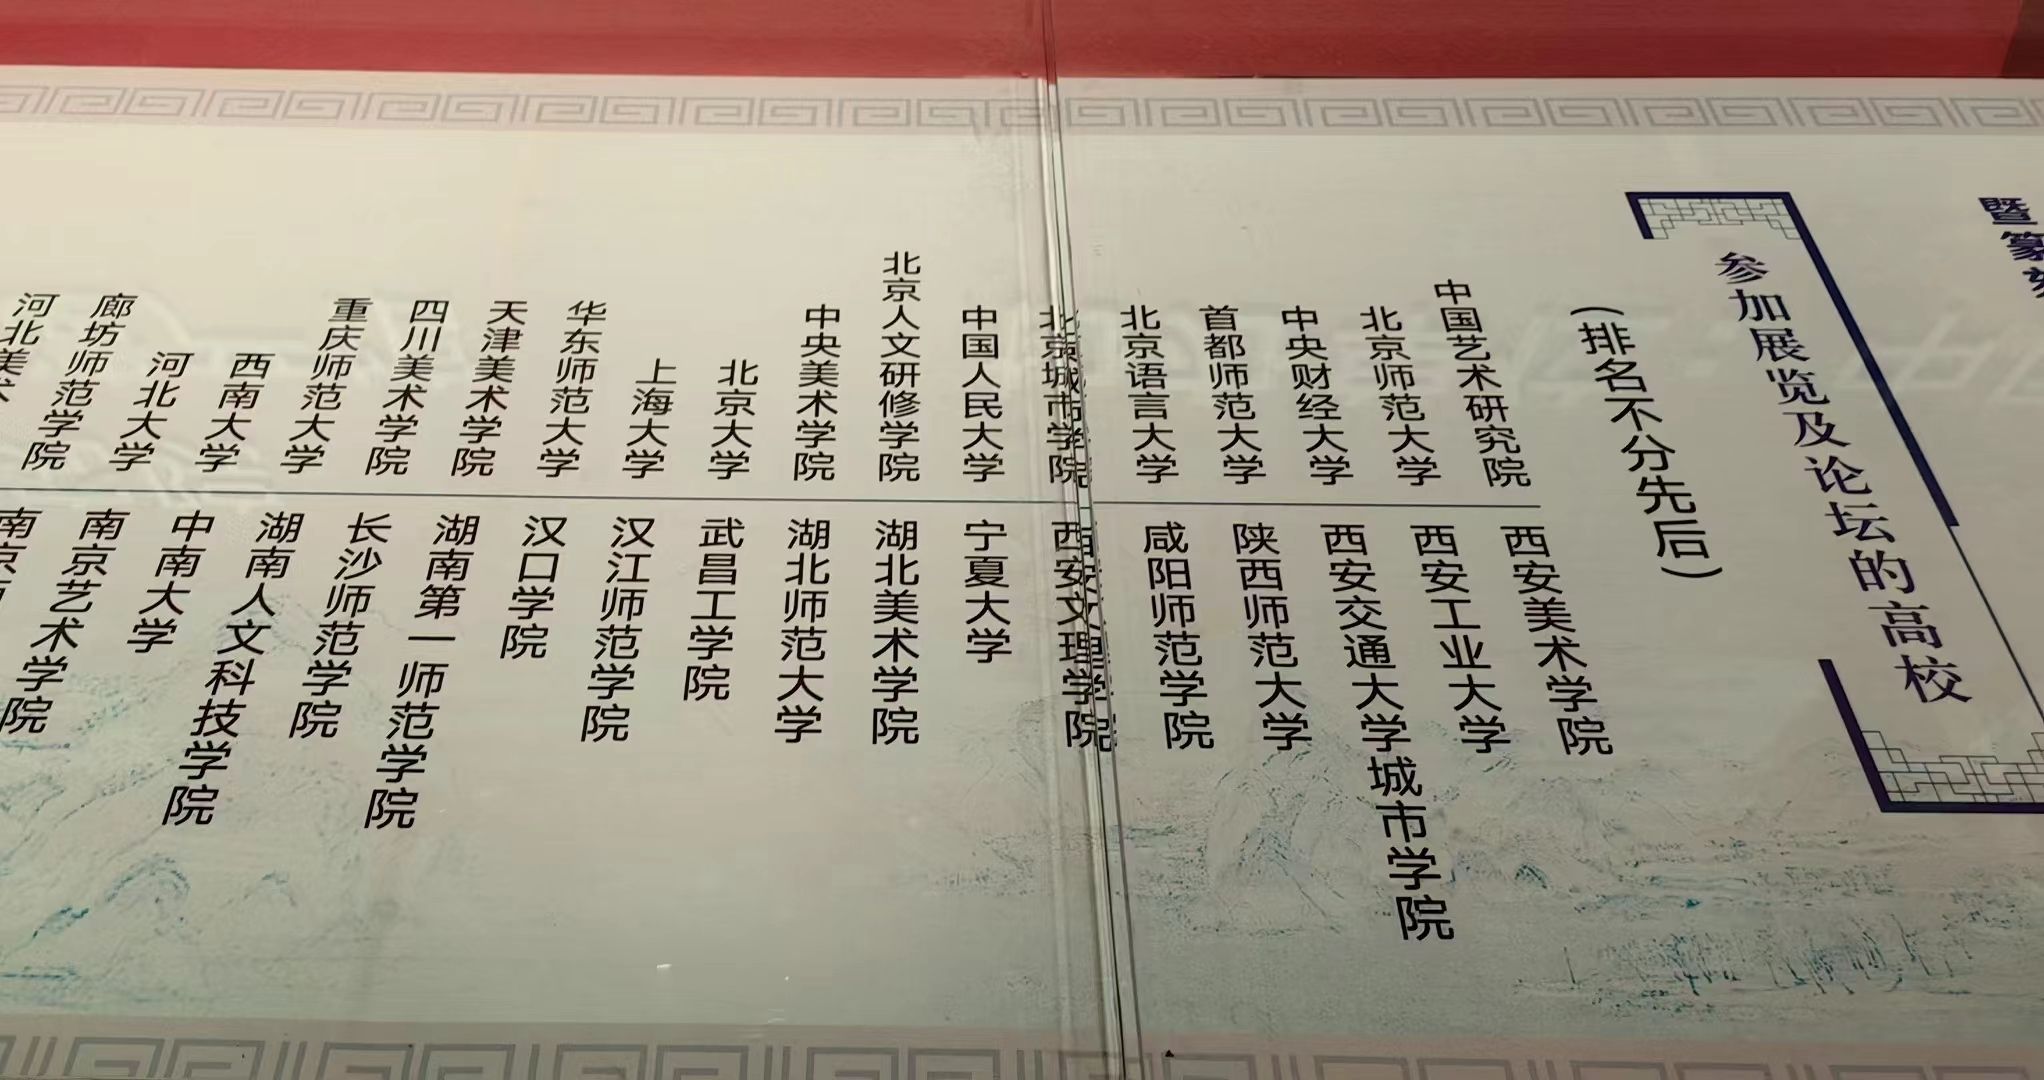 暨篆刻
参加展览及论坛的高校
(排名不分先后)
中国艺术研究院
北京师范大学
中央财经大学
首都师范大学
北京语言大学
北京城市学院
中国人民大学
北京人文研修学院
中央美术学院
北京大学
上海大学
华东师范大学
天津美术学院
四川美术学院
重庆师范大学
西南大学
河北大学
廊坊师范学院
河北美术
西安美术学院
西安工业大学
西安交通大学城市学院
陕西师范大学
咸阳师范学院
西安文理学院
宁夏大学
湖北美术学院
湖北师范大学
武昌工学院
汉江师范学院
汉口学院
湖南第一师范学院
长沙师范学院
湖南人文科技学院
中南大学
南京艺术学院
南京